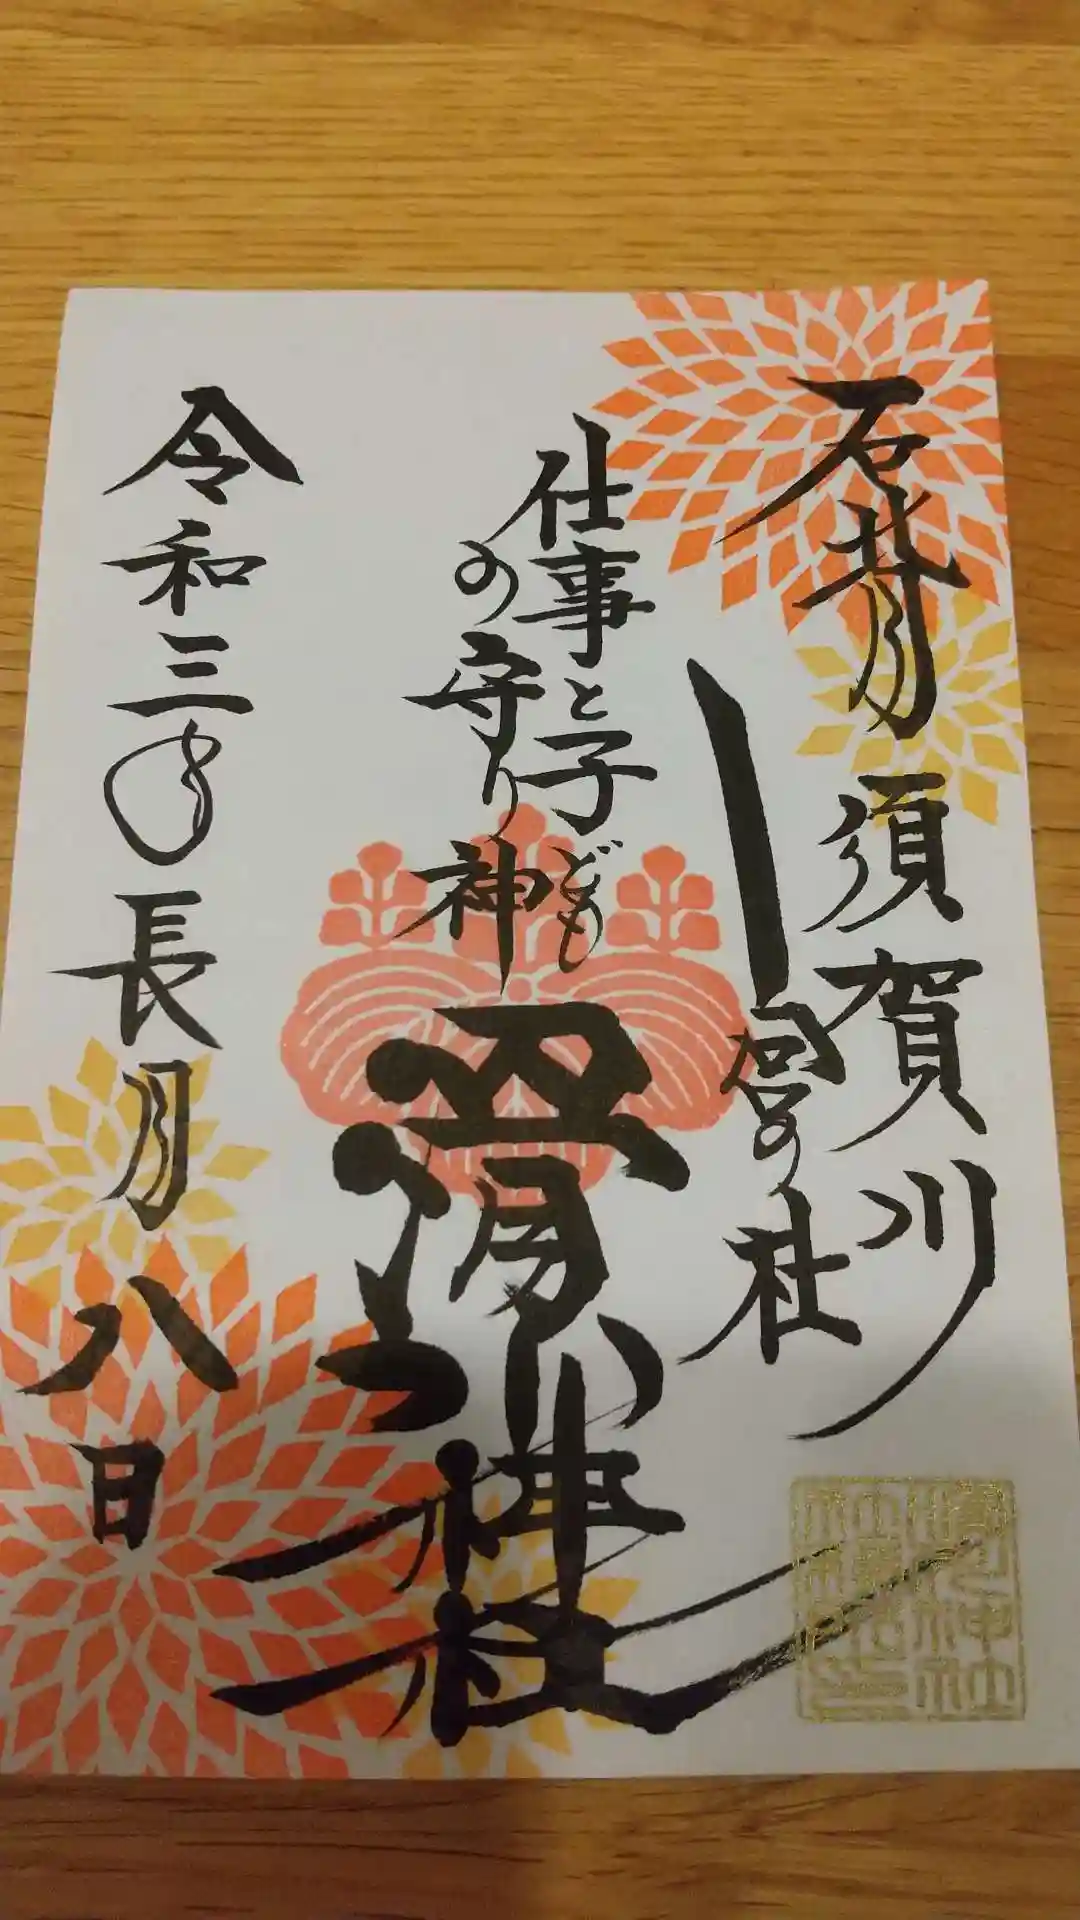 石背 須賀川
一回宮の社
仕事と子ども
の守り神
滑川神社
令和三年長月八日